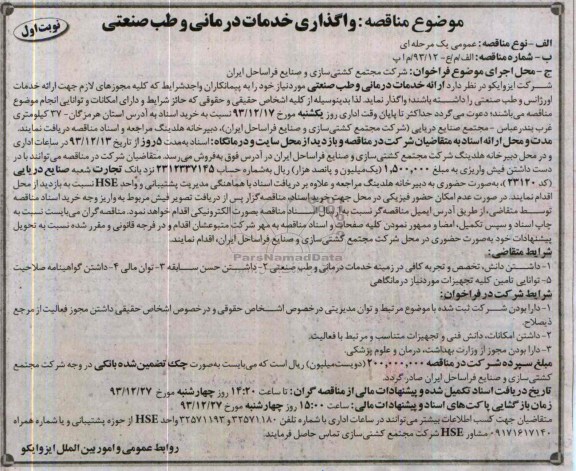 موضوع مناقصه: واگذاری خدمات درمانی و طب صنعتی
نوبت اول
الف- نوع مناقصه: عمومی یک مرحله ای
ب- شماره مناقصه: الف/م/ع-۹۳/۱۲/م ا پ
ج- محل اجرای موضوع فراخوان: شرکت مجتمع کشتی‌سازی و صنایع فراساحل ایران
شرکت ایزوایکو در نظر دارد ارائه خدمات درمانی و طب صنعتی موردنیاز خود را به پیمانکاران واجدشرایط که کلیه مجوزهای لازم جهت ارائه خدمات
اورژانس و طب صنعتی را داشته باشند؛ واگذار نماید. لذا بدینوسیله از کلیه اشخاص حقیقی و حقوقی که حائز شرایط و دارای امکانات و توانایی انجام موضوع
مناقصه می‌باشند؛ دعوت می‌گردد حداکثر تا پایان وقت اداری روز یکشنبه مورخ ۹۳/۱۲/۱۷ نسبت به خرید اسناد به آدرس استان هرمزگان- ۳۷ کیلومتری
غرب بندرعباس- مجتمع صنایع دریایی (شرکت مجتمع کشتی‌سازی و صنایع فراساحل ایران)، دبیرخانه هلدینگ مراجعه و اسناد مناقصه دریافت نمایند.
مدت و محل ارائه اسناد به متقاضیان شرکت در مناقصه و بازدید از محل سایت و درمانگاه: اسناد به مدت ۵ روز از تاریخ ۹۳/۱۲/۱۳ در ساعات اداری
و در محل دبیرخانه هلدینگ شرکت مجتمع کشتی‌سازی و صنایع فراساحل ایران در آدرس فوق به‌فروش می‌رسد. متقاضیان شرکت در مناقصه می‌توانند با در
دست داشتن فیش واریزی به مبلغ ۱,۵۰۰,۰۰۰ (یک‌میلیون و پانصد هزار) ریال به‌شماره حساب ۲۳۱۲۳۳۷۱۴۵ نزد بانک تجارت شعبه صنایع دریایی
(کد ۲۳۱۲۰)، به‌صورت حضوری به دبیرخانه هلدینگ مراجعه و علاوه بر دریافت اسناد با هماهنگی مدیریت پشتیبانی و واحد HSE نسبت به بازدید از محل
اقدام نمایند. در صورت عدم امکان حضور فیزیکی در محل جهت خرید اسناد، مناقصه‌گزار پس از دریافت تصویر فیش مربوط به واریز وجه خرید اسناد مناقصه
توسط متقاضی، از طریق آدرس ایمیل مناقصه‌گر نسبت به ارسال اسناد مناقصه بصورت الکترونیکی اقدام خواهد نمود. مناقصه‌گران می‌بایست نسبت به
چاپ اسناد و سپس تکمیل، امضا و ممهور نمودن کلیه صفحات و اسناد مناقصه به مهر شرکت متبوعشان اقدام و در فرجه قانونی و مقرر شده نسبت به تحویل
پیشنهادات خود به‌صورت حضوری در محل شرکت مجتمع کشتی‌سازی و صنایع فراساحل ایران، اقدام نمایند.
شرایط متقاضی:
۱- داشتن دانش، تخصص و تجربه کافی در زمینه خدمات درمانی و طب صنعتی ۲- داشتن حسن سابقه ۳- توان مالی ۴- داشتن گواهینامه صلاحیت
۵- توانایی تامین کلیه تجهیزات موردنیاز درمانگاهی
شرایط شرکت در فراخوان:
۱- دارا بودن شرکت ثبت شده با موضوع مرتبط و توان مدیریتی در خصوص اشخاص حقوقی و در خصوص اشخاص حقیقی داشتن مجوز فعالیت از مرجع
ذیصلاح.
۲- داشتن امکانات، دانش فنی و تجهیزات متناسب و مرتبط با فعالیت.
۳- دارا بودن مجوز از وزارت بهداشت، درمان و علوم پزشکی.
مبلغ سپرده شرکت در مناقصه ۲۰۰,۰۰۰,۰۰۰ (دویست‌میلیون) ریال است که می‌بایست به‌صورت چک تضمین شده بانکی در وجه شرکت مجتمع
کشتی‌سازی و صنایع فراساحل ایران صادر گردد.
تاریخ دریافت اسناد تکمیل شده و پیشنهادات مالی از مناقصه گران: تا ساعت ۱۴:۲۰ روز چهارشنبه مورخ ۹۳/۱۲/۲۷
زمان بازگشایی پاکت‌های اسناد و پیشنهادات مالی: ساعت ۱۵:۰۰ روز چهارشنبه مورخ ۹۳/۱۲/۲۷
متقاضیان جهت کسب اطلاعات بیشتر می‌توانند در ساعات اداری با شماره تلفن ۳۲۵۷۱۱۸۰ و ۳۲۵۷۱۱۹۳ واحد HSE از حوزه پشتیبانی و یا شماره همراه
۰۹۱۷۱۶۱۷۱۴۰ مشاور HSE شرکت مجتمع کشتی‌سازی تماس حاصل فرمایند.
روابط عمومی و امور بین الملل ایزوایکو
ParsNamadData